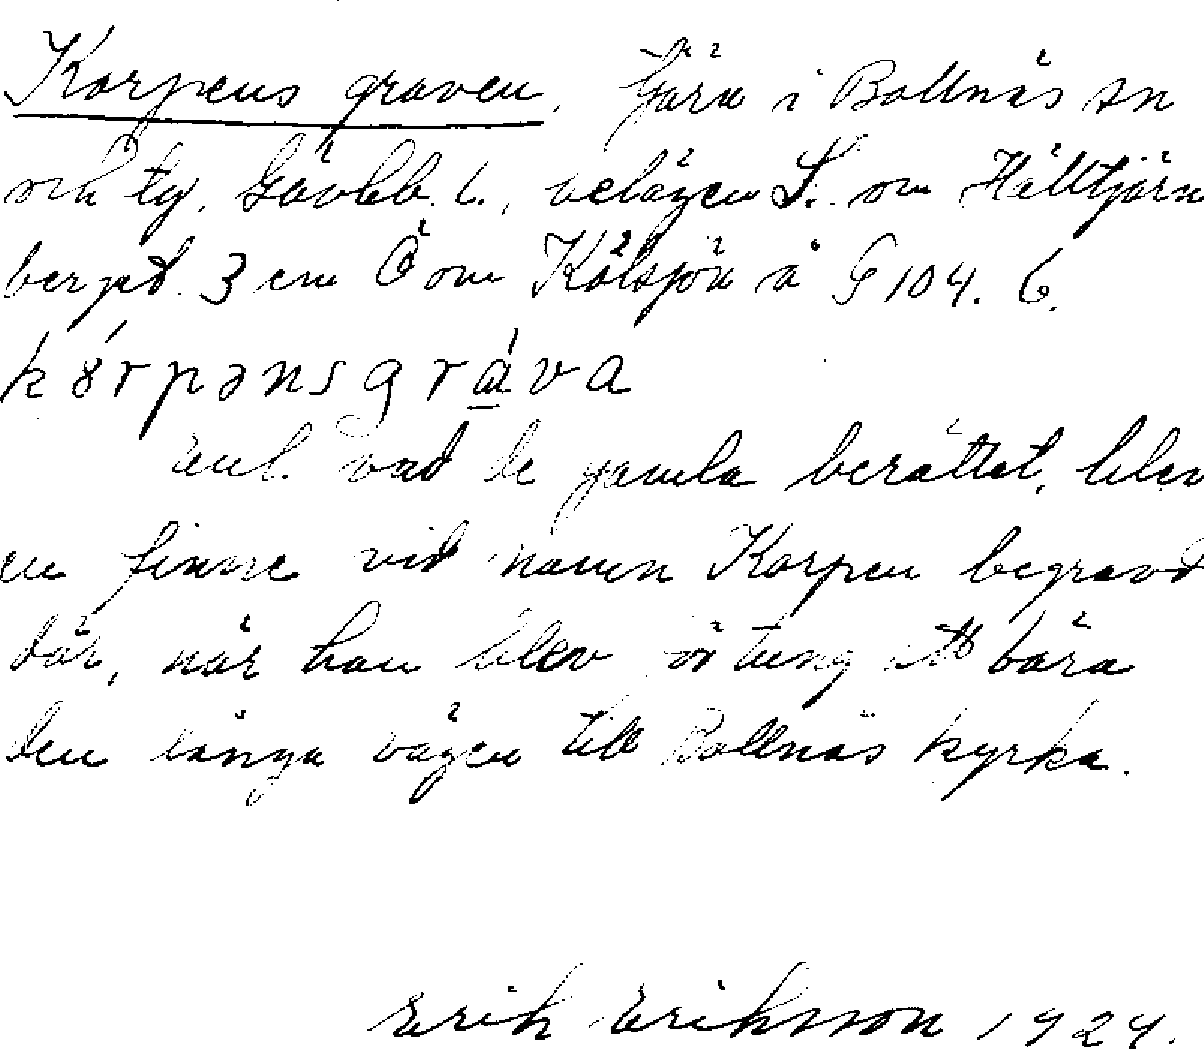 Korpens graven, Tjärn i Bollnäs sn
och tg, Gävleb. l., belägen S. om Hälltjärn
berget 3 cm Ö om Kölsjön å G 104. 6.
kórpənsgráva
Enl. vad de gamla berättat, blev
en finne vid namn Korpen begravd
där, när han blev för tung att bära
den långa vägen till Bollnäs kyrka.
Erik Eriksson 1924.